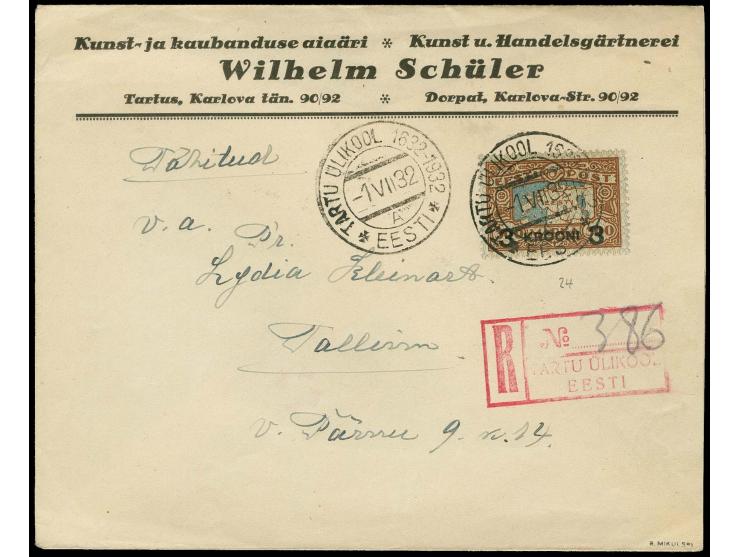 Kunst- ja kaubanduse aiaäri * Kunst u. Handelsgärtnerei
Wilhelm Schüler
Tartus, Karlova tän. 90/92 * Dorpat, Karlova-Str. 90/92
Tähitud
TARTU ÜLIKOOL 1632-1932
-1 VII 32
A
* EESTI *
TARTU ÜLIKOOL 1632
-1 VII 32
EESTI POST
3 KROONI 3
v. a. Pr.
Lydia Kleinart.
24
R № 386
TARTU ÜLIKOOL
EESTI
Tallinn
v. Pärnu 9. k. 14.
R. MIKULSKI